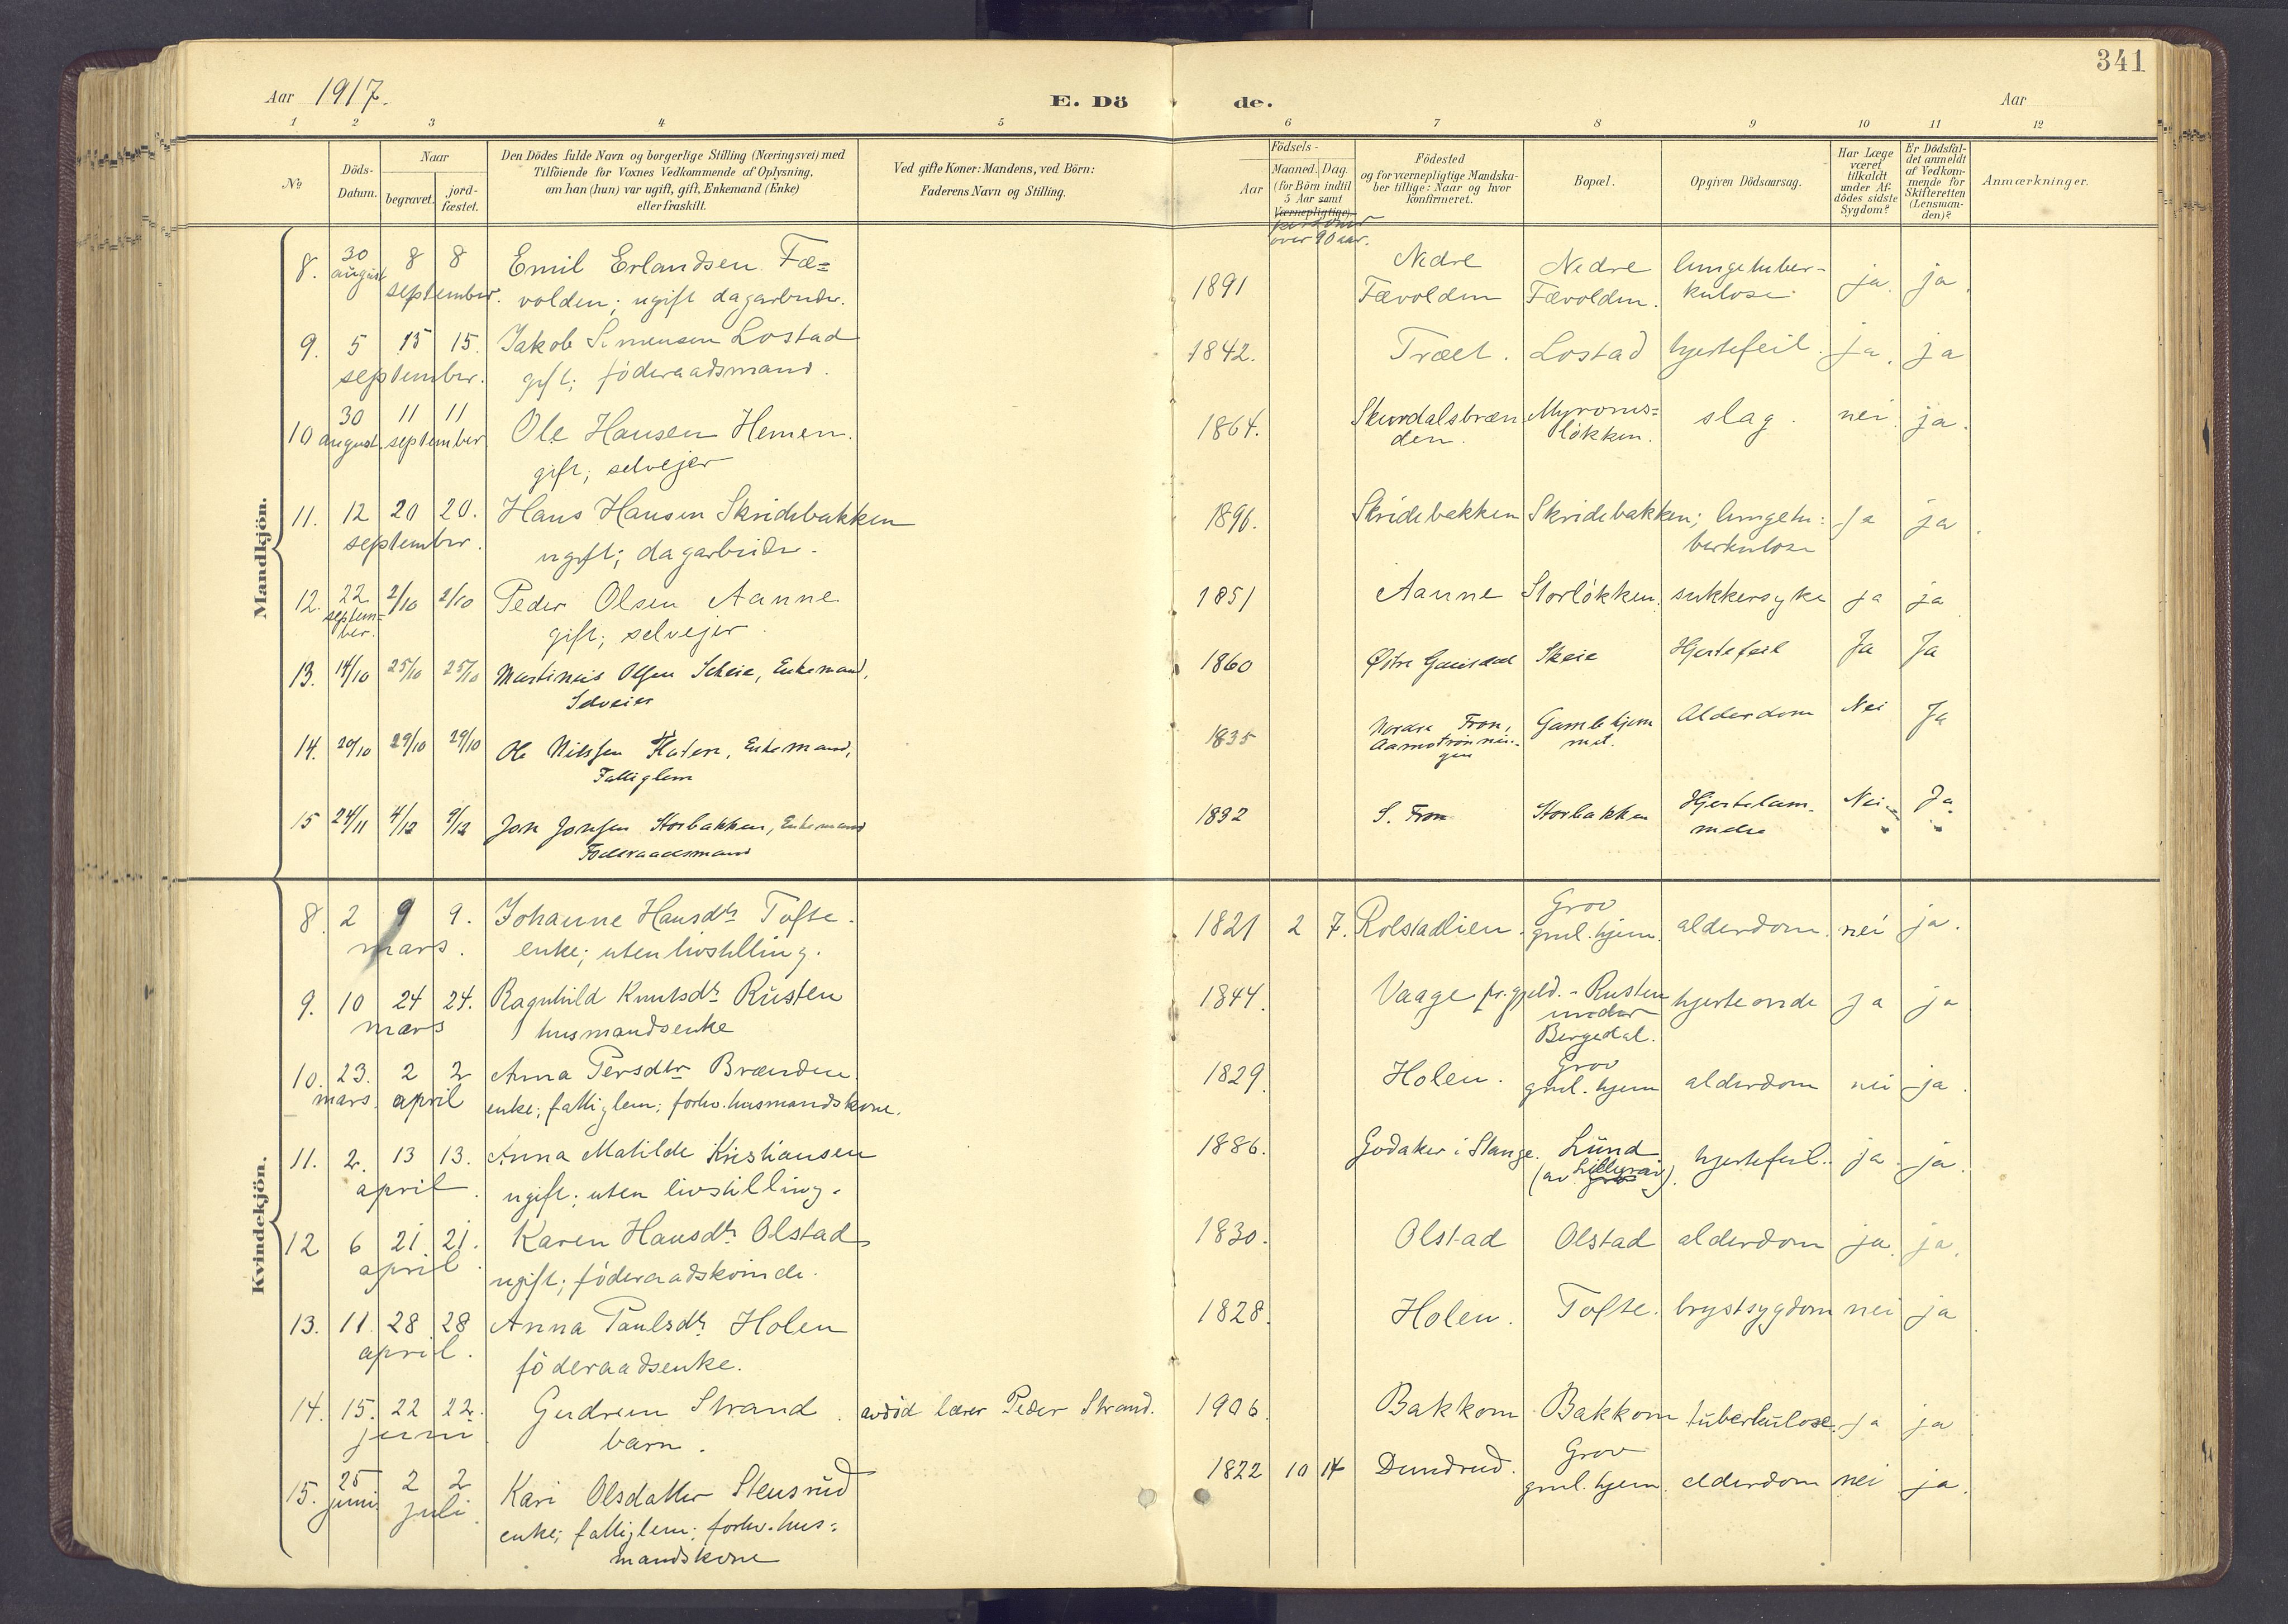 341
Aar 1917.
E. Dö de.
Aar
1 2 3 4 5 6 7 8 9 10 11 12
No
Döds-Datum.
Naar
begravet.
jord-fæstet.
Den Dödes fulde Navn og borgerlige Stilling (Næringsvei) med
Tilföiende for Voxnes Vedkommende af Oplysning,
om han (hun) var ugift, gift, Enkemand (Enke)
eller fraskilt.
Ved gifte Koner: Mandens, ved Börn:
Faderens Navn og Stilling.
Födsels-
Aar
Maaned. Dag.
(for Börn indtil
5 Aar samt
Værnepligtige).
personer
over 90 aar.
Födested
og for værnepligtige Mandska-
ber tillige: Naar og hvor
konfirmeret.
Bopæl.
Opgiven Dödsaarsag.
Har Læge
været
tilkaldt
under Af-
dödes sidste
Sygdom?
Er Dödsfal-
det anmeldt
af Vedkom-
mende for
Skifteretten
(Lensman-
den)?
Anmærkninger.
Mandkjön.
8. 30 august 8 8 september. Emil Erlandsen Fæ=
volden; ugift dagarbeider. 1891 Nedre Fævolden Nedre Fævolden. lungetuber-
kulose ja. ja.
9. 5 15 15. september. Jakob Simensen Lostad
gift; föderaadsmand. 1842. Træet. Lostad hjertefeil. ja. ja
10 30 august. 11 11 september Ole Hansen Hemen.
gift; selvejer 1864. Skurdalsbræn
den. Myroms=
løkken. slag. nei. ja.
11. 12 20 20. september. Hans Hansen Skridebakken
ugift; dagarbeider. 1896. Skridebakken Skridebakken; lungetu:
berkulose Ja ja.
12. 22 septem=
ber. 2/10 2/10 Peder Olsen Aanne
gift; selvejer. 1851 Aanne Storløkken. sukkersyke ja ja
13. 14/10 25/10 25/10 Martinius Olsen Scheie, Enkemand,
Selveier 1860 Østre Gausdal Skeie Hjertefeil Ja Ja
14. 20/10 29/10 29/10 Ole Nilssen Enkemand,
Fattiglem 1835 Nordre Fron, Gamlehjem
met. Alderdom Nei Ja
15 24/11 4/12 4/12 Jon Jonsen Storbakken, Enkemand
Föderaadsmand 1832 S. Fron Storbakken Hjertelam-
melse Nei Ja
Kvindekjön.
8. 2 9 9. mars. Johanne Hansdtr Tofte.
enke; uten livsstilling. 1821 2 7. Rolstadlien. Grov
gml. hjem. alderdom. nei ja.
9. 10 24 24. mars Ragnhild Knutsdtr Rusten
husmandsenke 1844. Vaage pr.gjeld. - Rusten
under
Bergedal. hjerteonde ja ja
10. 23. mars. 2 2 april Anna Persdtr Brænden.
enke; fattiglem; forhv. husmandskone. 1829. Holen. Grov
gml. hjem alderdom nei ja.
11. 2. 13 13. april. Anna Matilde Kristiansen
ugift; uten livsstilling. 1886. Godaker i Stange. Lund
hjertefeil. ja. ja.
12 6 21. 21. april. Karen Hansdtr Olstad
ugift; föderaadskvinde. 1830. Olstad Olstad alderdom ja. ja.
13. 11. 28 28 april. Anna Paulsdtr Holen
föderaadsenke. 1828. Holen. Tofte. brystsygdom nei ja
14. 15. 22 22. juni Gudrun Strand.
barn. avdød lærer Peder Strand. 1906. Bakkom Bakkom tuberkulose. ja ja
15. 25 juni 2 2 juli. Kari Olsdatter Stensrud
enke; fattiglem; forhv. hus=
mandskone 1822 10 14 Dundrud. Grov
gml. hjem. alderdom nei ja.